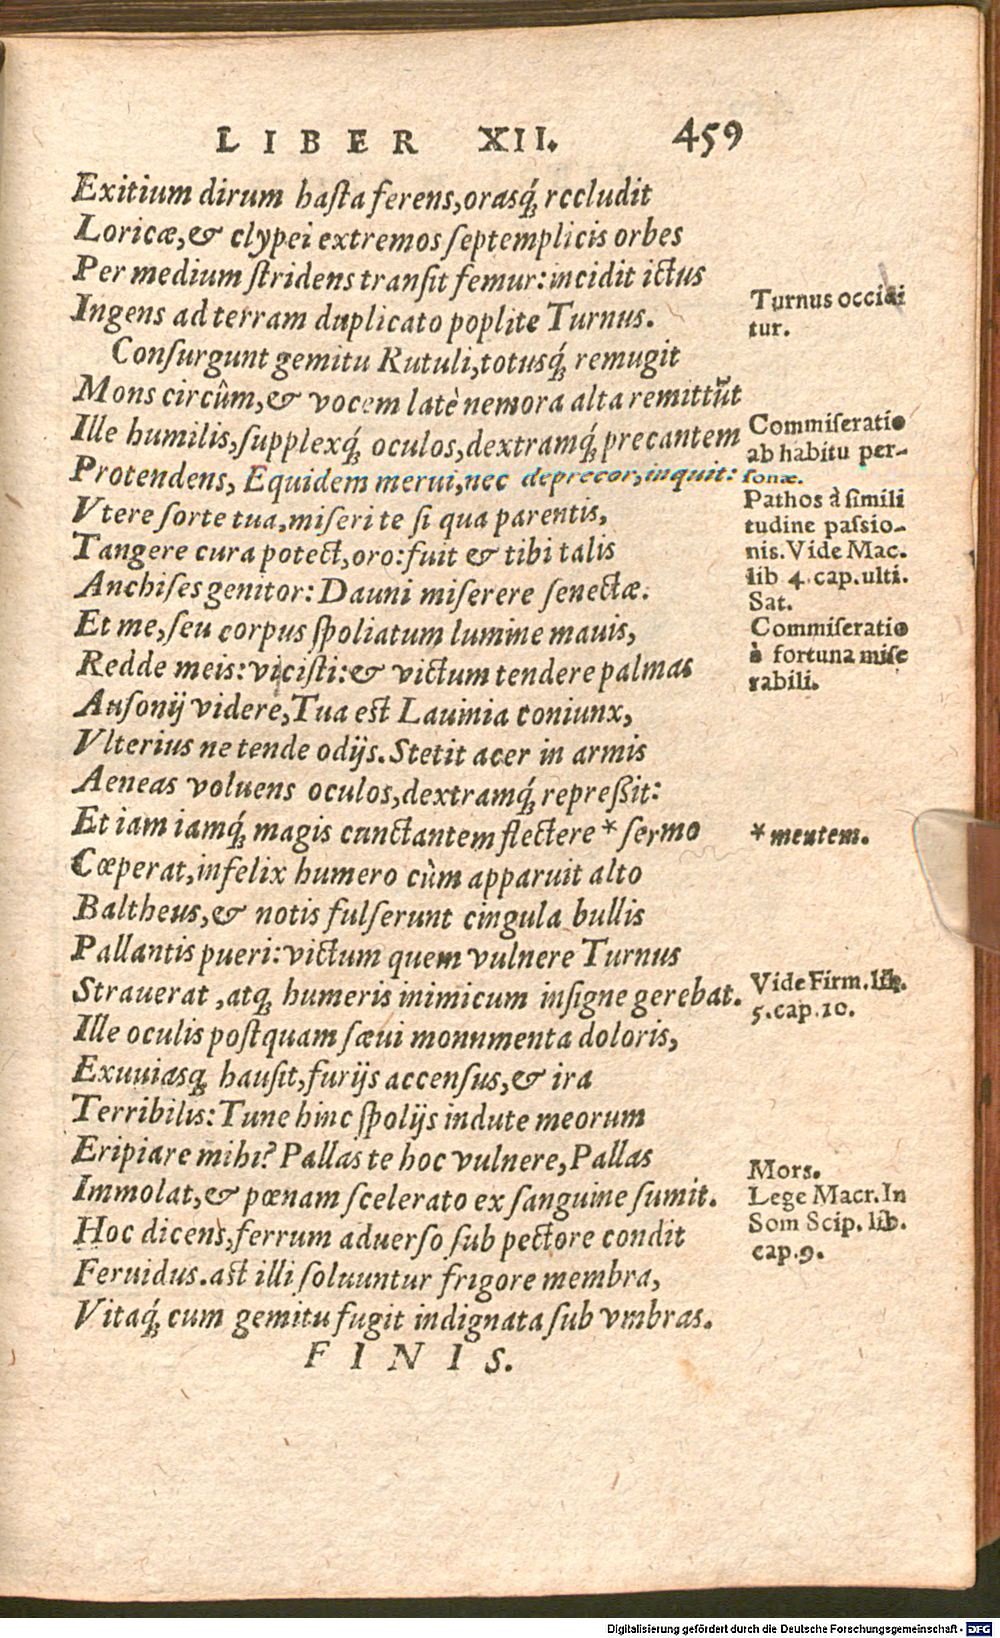 LIBER XII. 459
Exitium dirum haſta ferens,orasq́ꝫ rccludit
Loricæ,& clypei extremos ſeptemplicis orbes
Per medium ſtridens tranſit femur:incidit ictus
Ingens ad terram duplicato poplite Turnus.
Turnus occidi
tur.
Conſurgunt gemitu Rutuli,totusq́ꝫ remugit
Mons circûm,& vocem latè nemora alta remittũt
Ille humilis,ſupplexq́ꝫ oculos,dextramq́ꝫ precantem
Protendens, Equidem merui,nec deprecor,inquit:
Commiſeratio
ab habitu per-
ſonæ.
Vtere ſorte tua,miſeri te ſi qua parentis,
Tangere cura potect,oro:fuit & tibi talis
Anchiſes genitor: Dauni miſerere ſenectæ.
Pathos à ſimili
tudine paſsio-
nis.Vide Mac.
lib 4.cap.ulti.
Sat.
Et me,ſeu corpus ſpoliatum lumine mauis,
Redde meis:viciſti:& victum tendere palmas
Commiſeratio
à fortuna miſe
rabili.
Auſonij videre,Tua est Lauinia coniunx,
Vlterius ne tende odijs.Stetit acer in armis
Aeneas voluens oculos,dextramq́ꝫ repreſsit:
Et iam iamq́ꝫ magis cunctantem flectere * ſermo
* mentem.
Cœperat,infelix humero cùm apparuit alto
Baltheus,& notis fulſerunt cingula bullis
Pallantis pueri:victum quem vulnere Turnus
Strauerat ,atqꝫ humeris inimicum inſigne gerebat.
Vide Firm.lib.
5.cap.10.
Ille oculis poſtquam ſæui monumenta doloris,
Exuuiasqꝫ hauſit,furijs accenſus,& ira
Terribilis:Tune hinc ſpolijs indute meorum
Eripiare mihi? Pallas te hoc vulnere,Pallas
Immolat,& pœnam ſcelerato ex ſanguine ſumit.
Hoc dicens,ferrum aduerſo ſub pectore condit
Mors.
Lege Macr.In
Som Scip.lib.
cap.9.
Feruidus.ast illi ſoluuntur frigore membra,
Vitaq́ꝫ cum gemitu fugit indignata ſub vmbras.
FINIS.
Digitalisierung gefördert durch die Deutsche Forschungsgemeinschaft - DFG